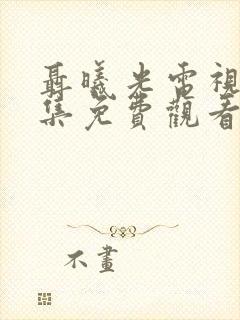 聶曦光電視
集免費觀看
不畫